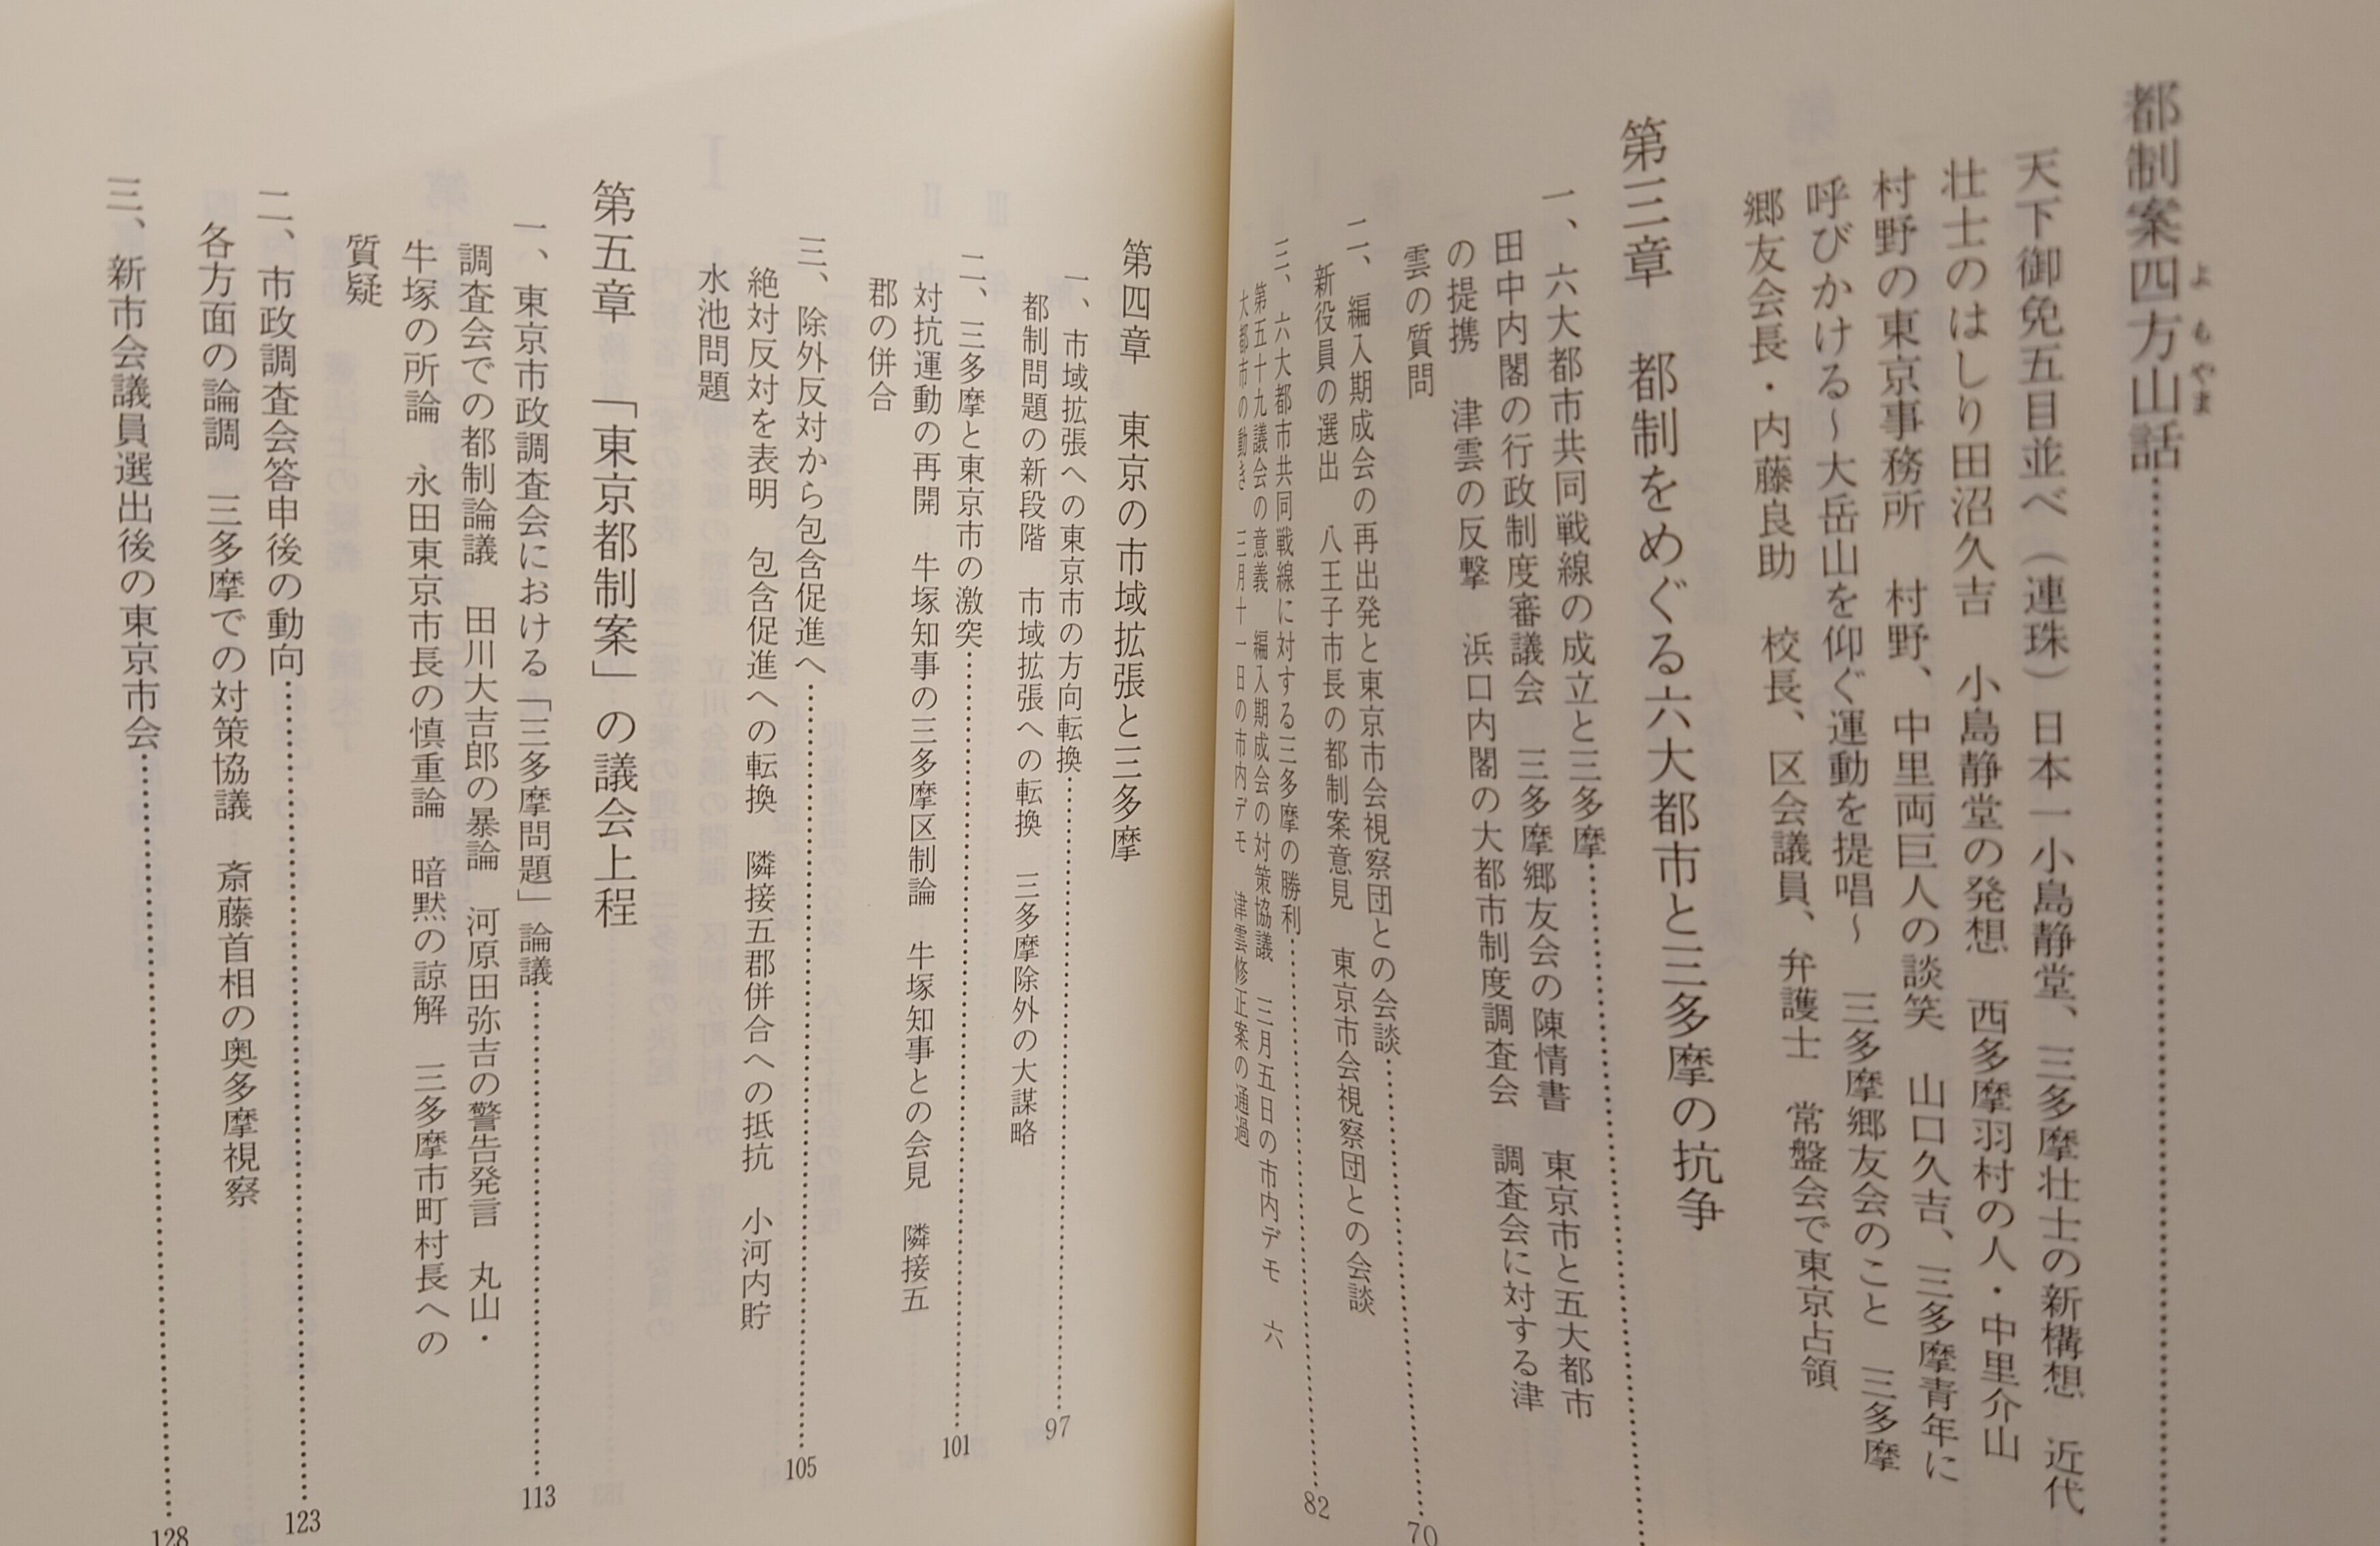 都制案四方山話
よもやま
天下御免五目並べ（連珠）日本一小島静堂、三多摩壮士の新構想　近代
壮士のはしり田沼久吉　小島静堂の発想　西多摩羽村の人・中里介山
村野の東京事務所　村野、中里両巨人の談笑　山口久吉、三多摩青年に
呼びかける～大岳山を仰ぐ運動を提唱～　三多摩郷友会のこと　三多摩
郷友会長・内藤良助　校長、区会議員、弁護士　常盤会で東京占領
第三章　都制をめぐる六大都市と三多摩の抗争
一、六大都市共同戦線の成立と三多摩
田中内閣の行政制度審議会　三多摩郷友会の陳情書　東京市と五大都市
の提携　津雲の反撃　浜口内閣の大都市制度調査会　調査会に対する津
雲の質問
二、編入期成会の再出発と東京市会視察団との会談 70
新役員の選出　八王子市長の都制案意見　東京市会視察団との会談
三、六大都市共同戦線に対する三多摩の勝利 82
第五十九議会の意義　編入期成会の対策協議　三月五日の市内デモ　六
大都市の動き　三月十一日の市内デモ　津雲修正案の通過
第四章　東京の市域拡張と三多摩
一、市域拡張への東京市の方向転換 97
都制問題の新段階　市域拡張への転換　三多摩除外の大謀略
二、三多摩と東京市の激突 101
対抗運動の再開　牛塚知事の三多摩区制論　牛塚知事との会見　隣接五
郡の併合
三、除外反対から包含促進へ 105
絶対反対を表明　包含促進への転換　隣接五郡併合への抵抗　小河内貯
水池問題
第五章　「東京都制案」の議会上程
一、東京市政調査会における「三多摩問題」論議 113
調査会での都制論議　田川大吉郎の暴論　河原田弥吉の警告発言　丸山・
牛塚の所論　永田東京市長の慎重論　暗黙の諒解　三多摩市町村長への
質疑
二、市政調査会答申後の動向 123
各方面の論調　三多摩での対策協議　斎藤首相の奥多摩視察
三、新市会議員選出後の東京市会 128